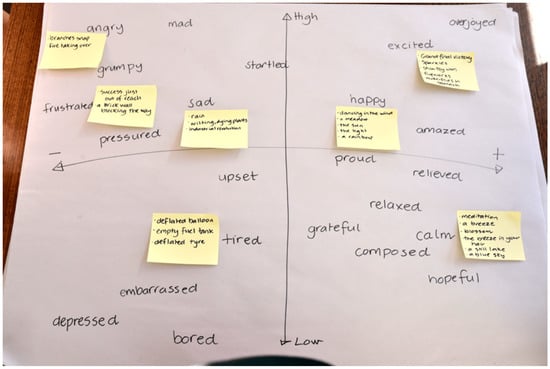 angry
mad
High
overjoyed
branches snap
fire taking over
excited
grumpy
startled
Grand final victory
Sparkles
fireworks
frustrated
success just
out of reach
a brick wall
blocking the way
sad
- rain
- wilting, dying plants
- industrial revolution
happy
- dancing in the wind
- a meadow
- the sun
- the light
- a rainbow
pressured
amazed
-
+
proud
upset
relieved
relaxed
- deflated balloon
- empty fuel tank
deflated tyre
tired
grateful
calm
- meditation
- a breeze
- blossom
the breeze in your
hair
- a still lake
a blue sky
composed
hopeful
embarrassed
depressed
bored
Low